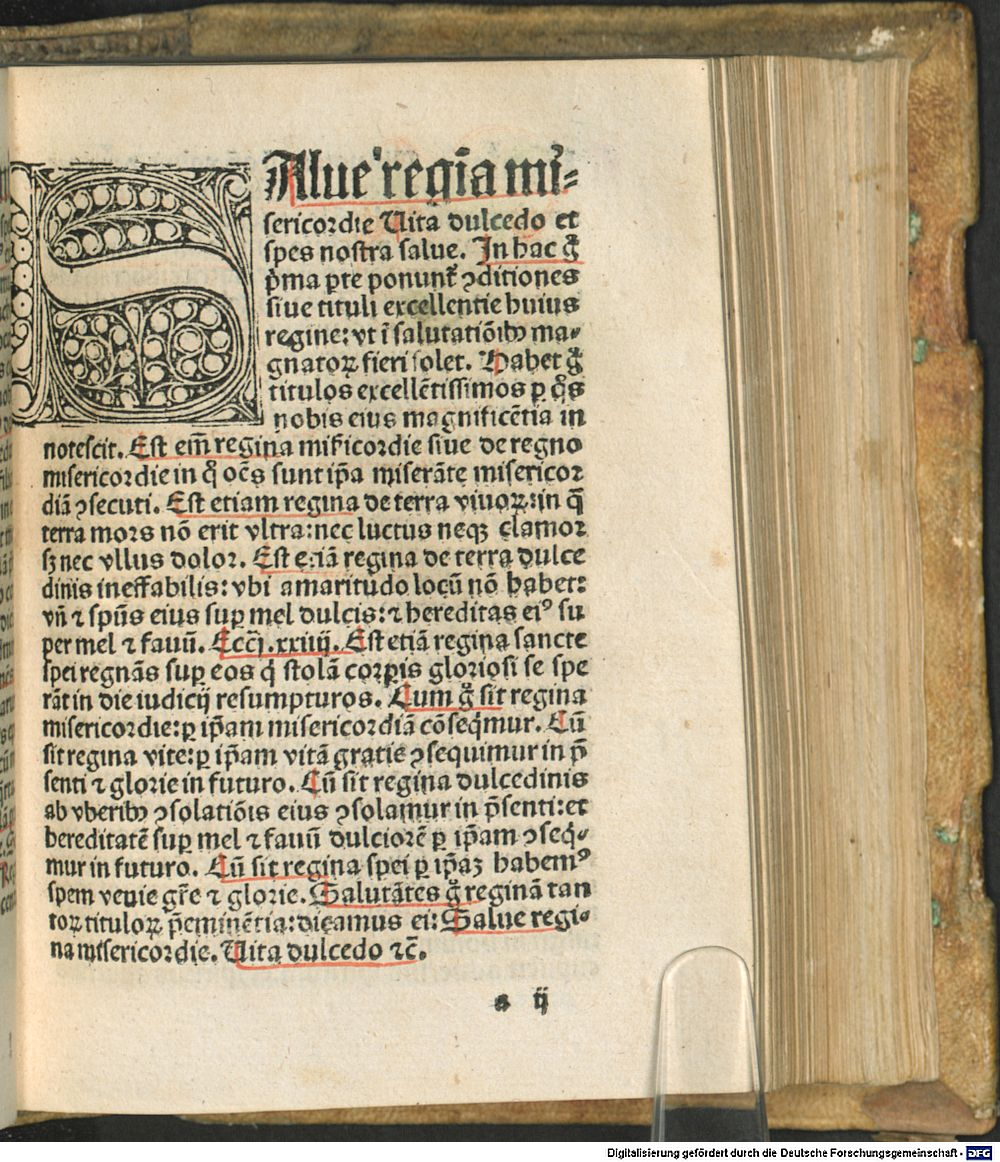 SAlue regīa mi-
sericordie Uita dulcedo et
spes nostra salue. In hac g̃
p̄ma ꝑte ponunt᷑ ꝯditiones
siue tituli excellentie huius
regine: vt ī salutatiōibꝰ ma-
gnatoꝝ fieri solet. Habet g̃
titulos excellētissimos ꝑ q̄s
nobis eius magnificētia in
notescit. Est em̄ regina mīcordie siue de regno
misericordie in q̊ oēs sunt ip̄a miserāte misericor
diā ꝯsecuti. Est etiam regina de terra viuoꝝ: in q̄
terra mors nō erit vltra: nec luctus neqꝫ clamor
sꝫ nec vllus dolor. Est etiā regina de terra dulce
dinis ineffabilis: vbi amaritudo locū nō habet:
vñ ⁊ spūs eius suꝑ mel dulcis: ⁊ hereditas eiꝰ su
per mel ⁊ fauū. Ecc̄i .xxiiij. Est etiā regina sancte
spei regnās suꝑ eos q̇ stolā corꝑis gloriosi se spe
rāt in die iudicij resumpturos. Cum g̃ sit regina
misericordie: ꝑ ip̄am misericordiā cōseq̇mur. Cū
sit regina vite: ꝑ ip̄am vitā gratie ꝯsequimur in p̄
senti ⁊ glorie in futuro. Cū sit regina dulcedinis
ab vberibꝰ ꝯsolatiōis eius ꝯsolamur in p̄senti: et
hereditatē suꝑ mel ⁊ fauū dulciorē ꝑ ip̄am ꝯseq̇-
mur in futuro. Cū sit regina spei ꝑ ip̄aꝫ habemꝰ
spem venie gr̄e ⁊ glorie. Salutātes g̃ reginā tan
toꝝ tituloꝝ p̄eminētia: dicamus ei: Salue regi-
na misericordie. Uita dulcedo ⁊c̄.
a ij
Digitalisierung gefördert durch die Deutsche Forschungsgemeinschaft - DFG